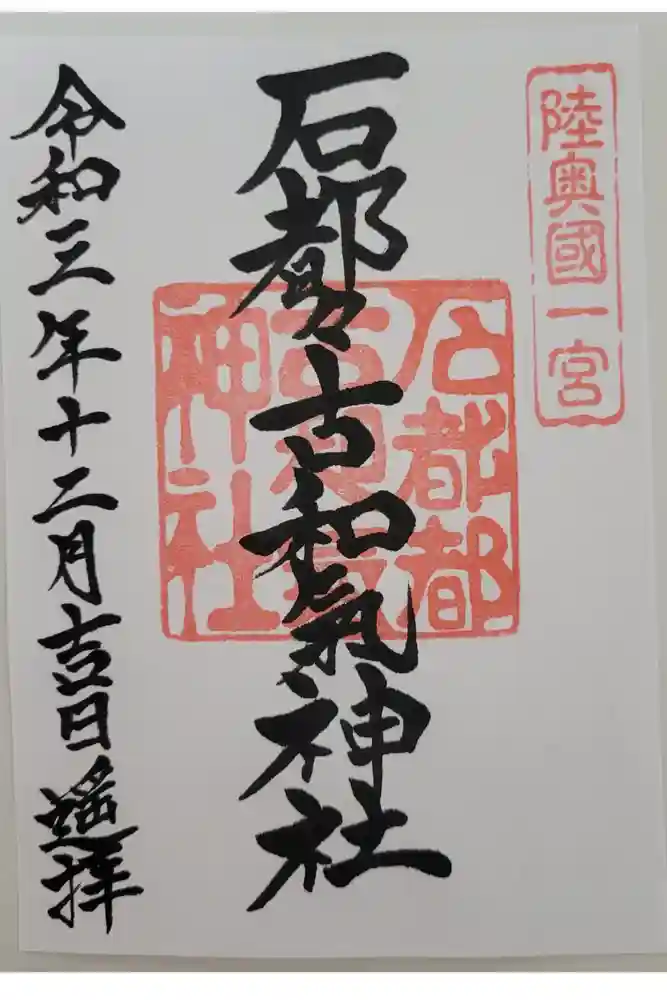 陸奥國一宮
石都々古和氣神社
石都都
古和氣
神社
令和三年十二月吉日遥拝